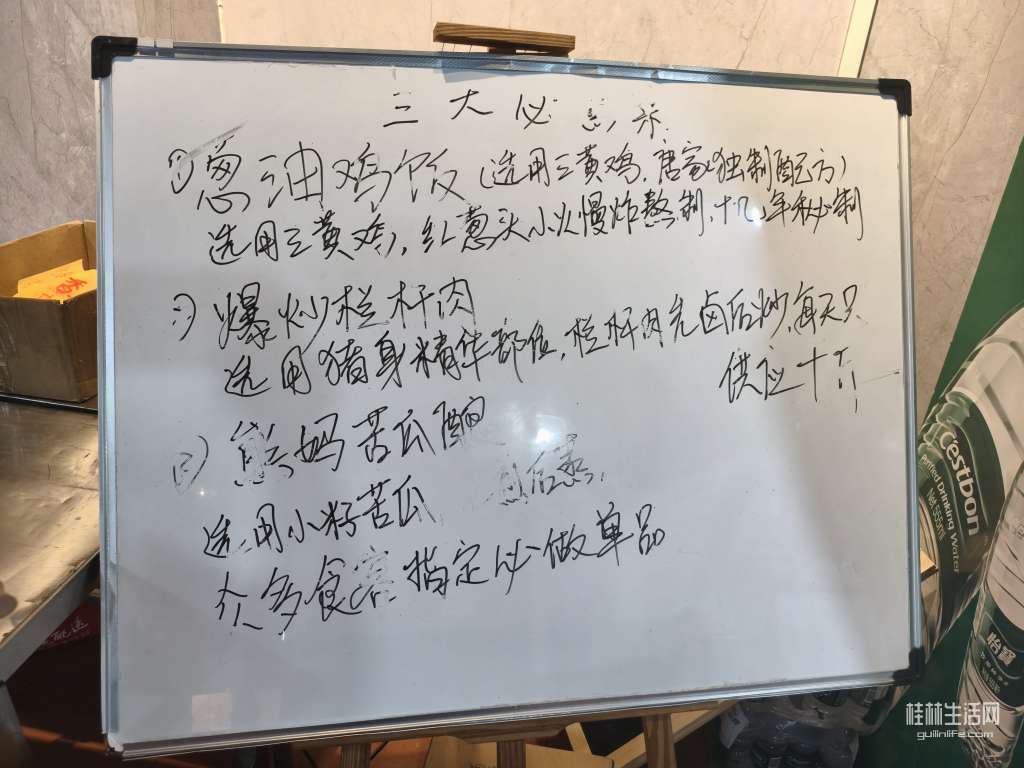 三大必
① 葱油鸡饭(选用三黄鸡,唐家独制配方)
选用三黄鸡,红葱头小火慢炸熬制,十几年秘制
爆炒栏杆肉
选用猪身精华部位,栏杆肉先卤后炒,每天只
供应十
熊妈苦瓜酿
选用小籽苦瓜
众多食客指定必做单品
C'estbon
Purified Drinking Water
怡宝
桂林生活网
guilinlife.com